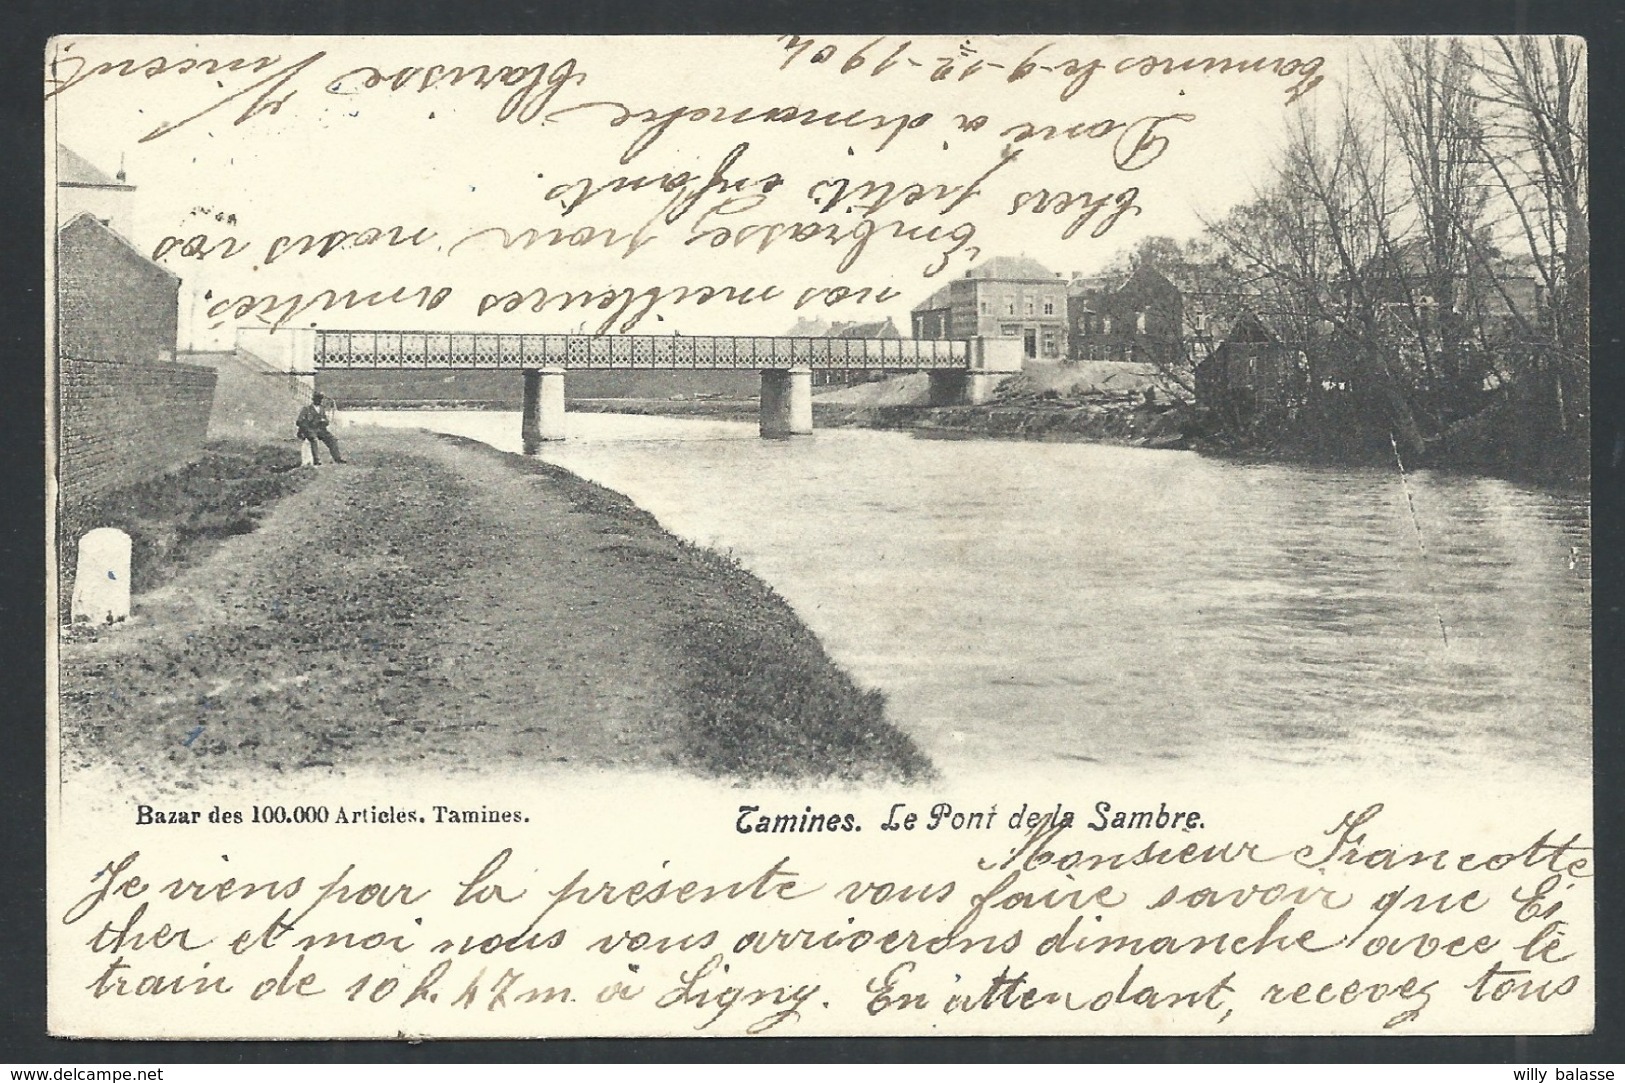 Bazar des 100.000 Articles. Tamines.
Tamines. Le Pont de la Sambre.
Monsieur Francotte
Je viens par la présente vous faire savoir que
cher et moi nous vous arriverons dimanche avec le
train de 10 h. 47 m. à Ligny. En attendant, recevez tous
nos meilleures amitiés.
Embrassez pour nous vos
chers petits enfants.
Donc à dimanche
Clarisse Vincent
Tamines le 9-12-1904
www.delcampe.net
willy balasse